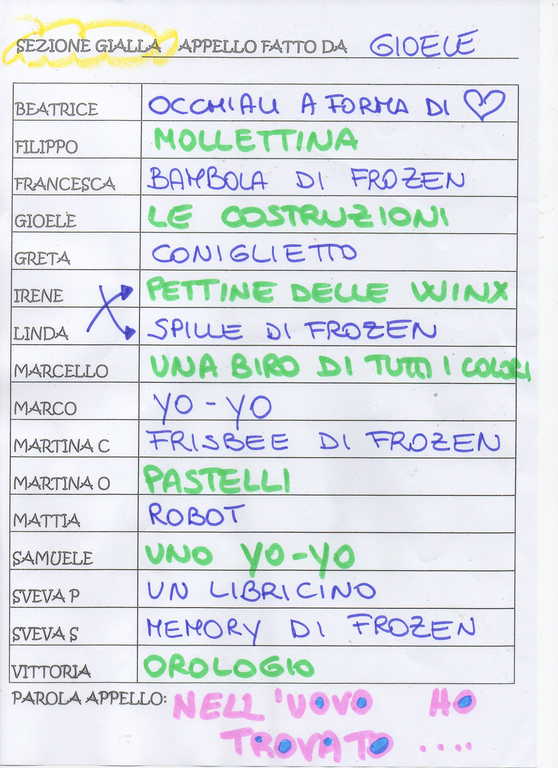 SEZIONE GIALLA APPELLO FATTO DA GIOELE
BEATRICE OCCHIALI A FORMA DI
FILIPPO MOLLETTINA
FRANCESCA BAMBOLA DI FROZEN
GIOELE LE COSTRUZIONI
GRETA CONIGLIETTO
IRENE PETTINE DELLE WINX
LINDA SPILLE DI FROZEN
MARCELLO UNA BIRO DI TUTTI I COLORI
MARCO YO-YO
MARTINA C FRISBEE DI FROZEN
MARTINA O PASTELLI
MATTIA ROBOT
SAMUELE UNO YO-YO
SVEVA P UN LIBRICINO
SVEVA S MEMORY DI FROZEN
VITTORIA OROLOGIO
PAROLA APPELLO: NELL'UOVO HO
TROVATO ....